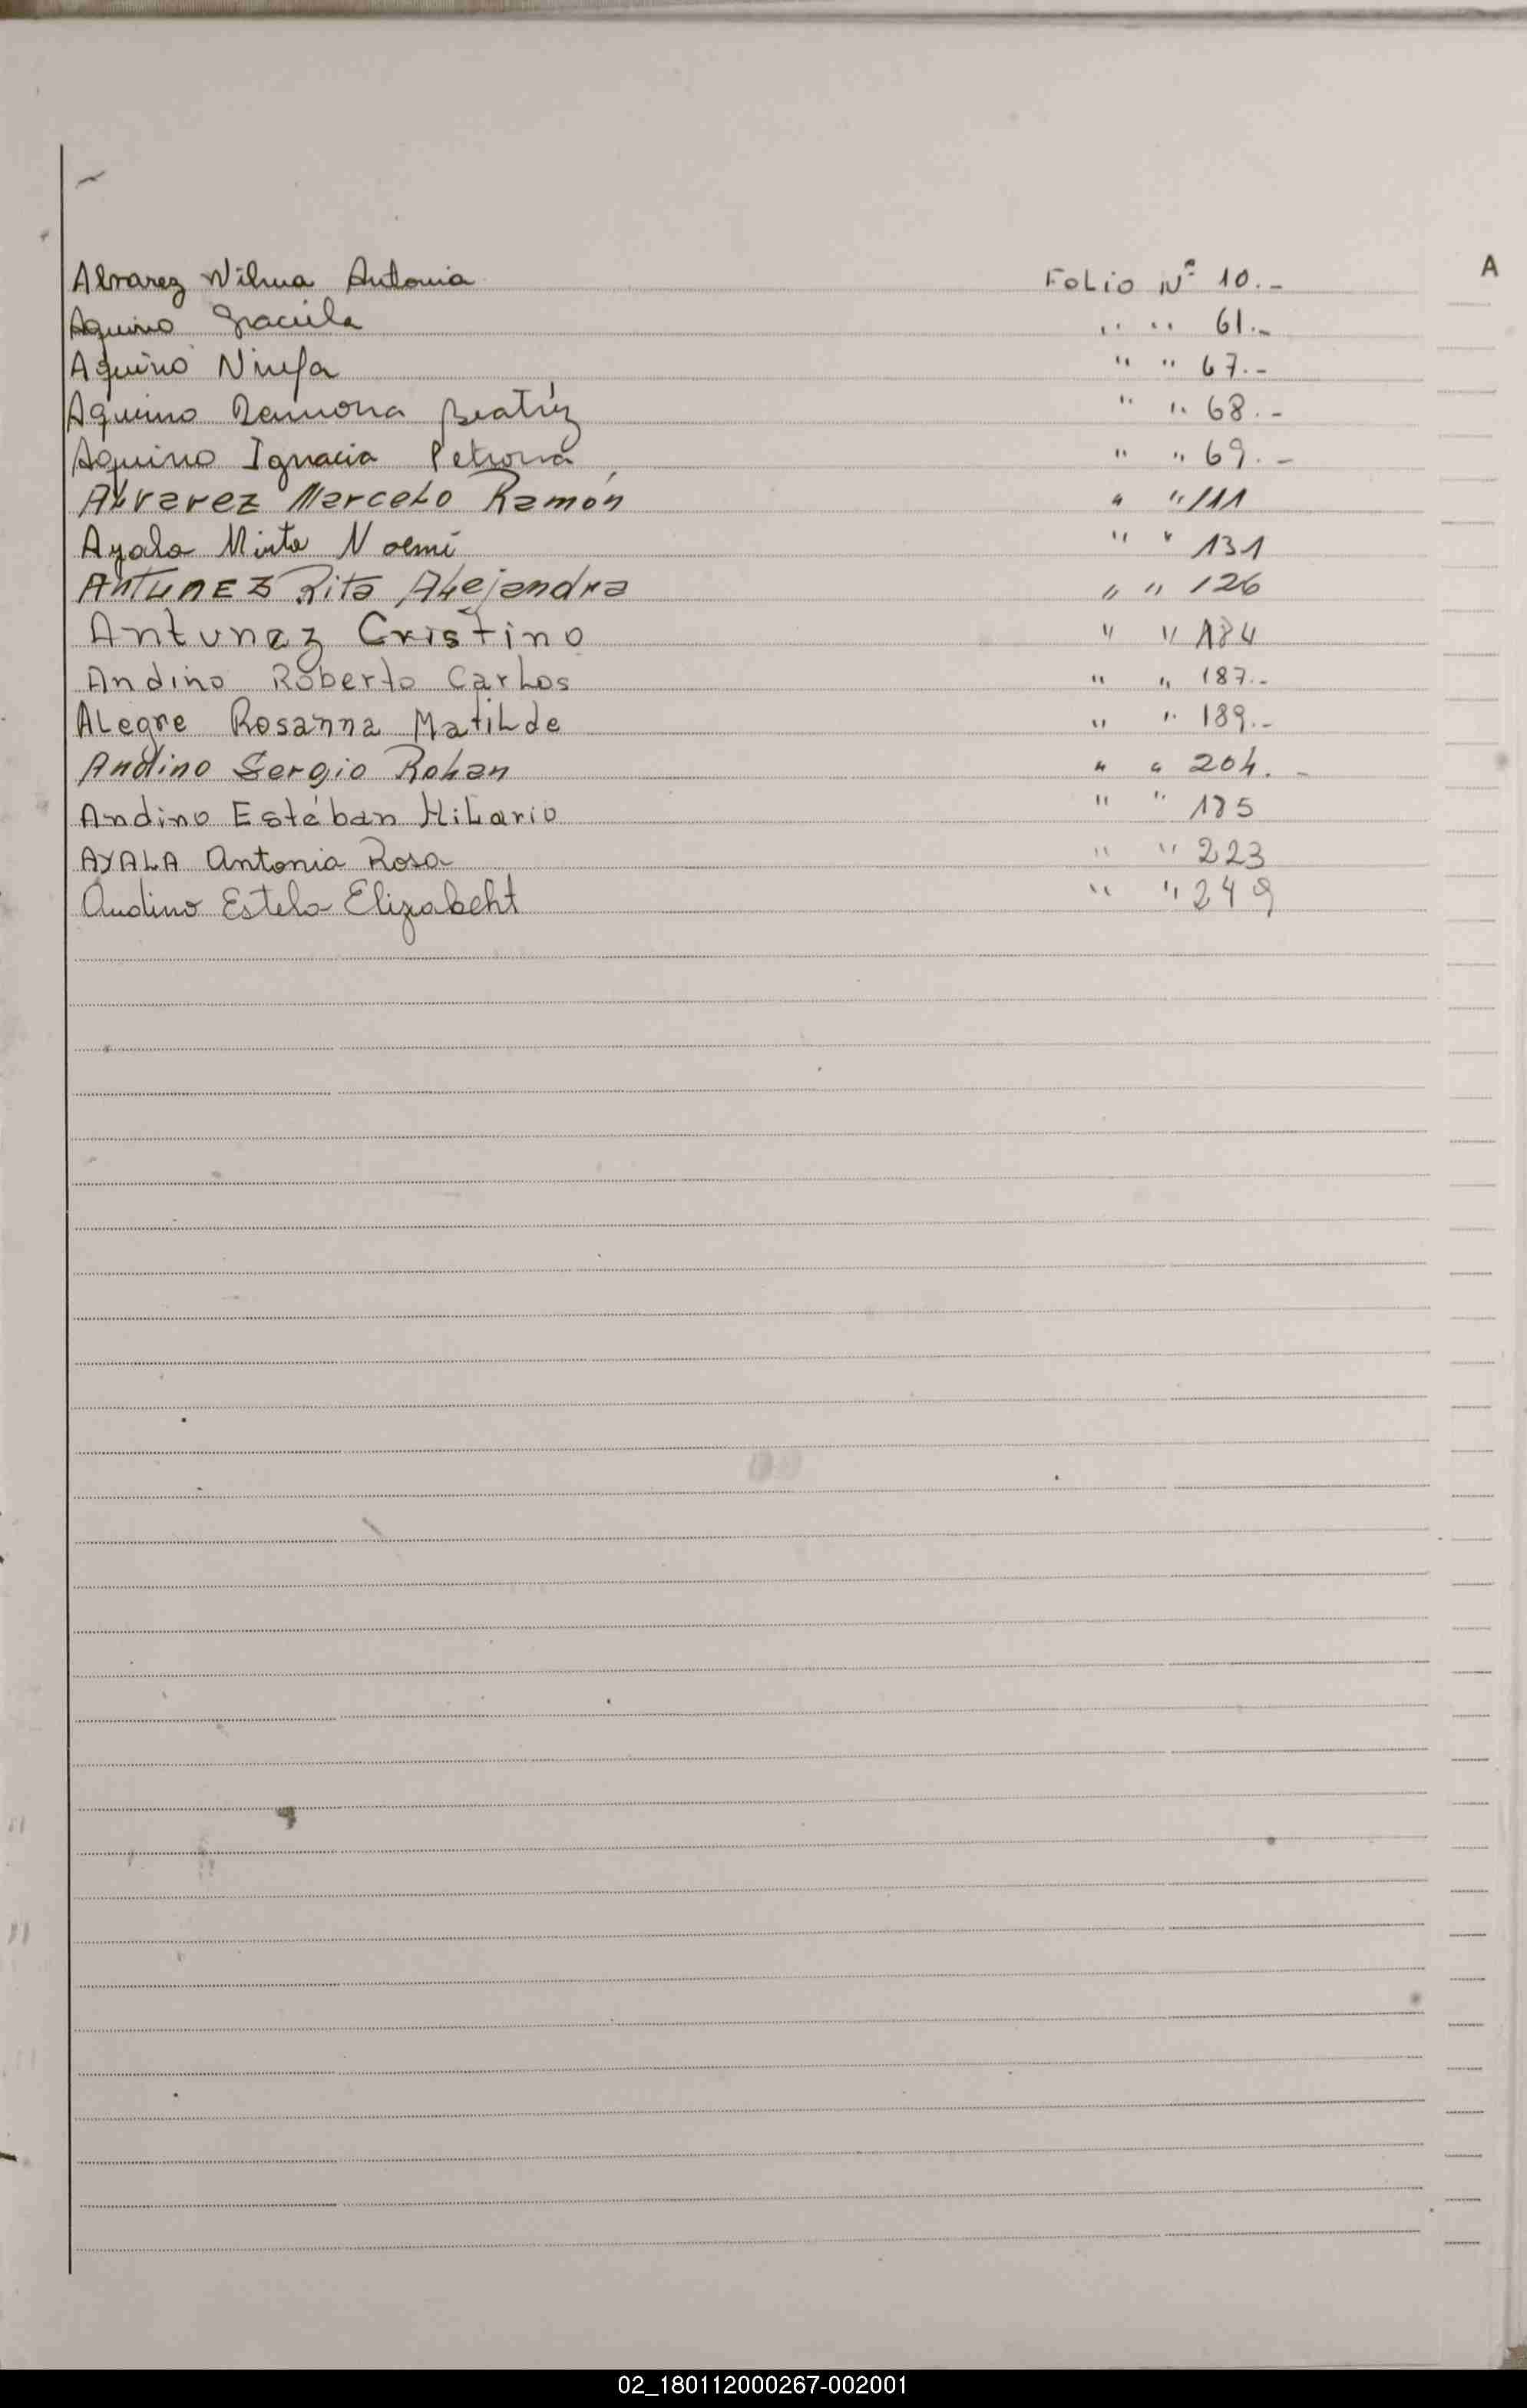 A
Alvarez Wilma Antonia Folio Nº 10.-
Aquino Graciela " " 61.-
Aquino Ninfa " " 67.-
Aquino Ramona Beatríz " " 68.-
Aquino Ignacia Petrona " " 69.-
Alvarez Marcelo Ramón " " 111
Ayala Mirta Noemí " " 131
Antunez Rita Alejandra " " 126
Antunez Cristino " " 184
Andino Roberto Carlos " " 187.-
Alegre Rosanna Matilde " " 189.-
Andino Sergio Rolan " " 204.-
Andino Estéban Hilario " " 185
AYALA Antonia Rosa " " 223
Andino Estela Elizabeht " " 249
02_180112000267-002001